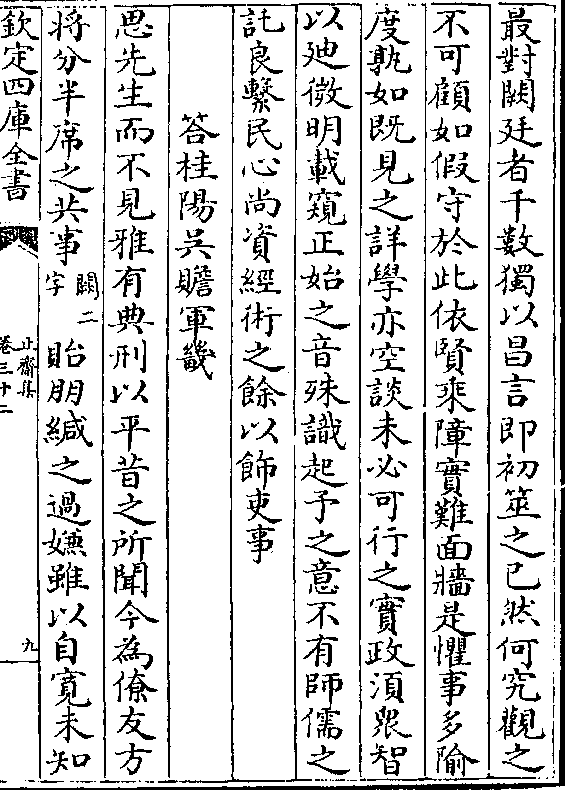 最對闕廷者千數獨以昌言即初筮之已然何究觀之
不可顧如假守於此依賢乘障實難面牆是懼事多隃
度孰如既見之詳學亦空談未必可行之實政須衆智
以廸微明載窺正始之音殊識起予之意不有師儒之
託良繫民心尚資經術之餘以飾吏事
答桂陽吳贍軍畿
思先生而不見雅有典刑以平昔之所聞今為僚友方
將分半席之共事闕二字貽朋緘之過嫵雖以自寛未知
欽定四庫全書
止齋集
卷三十二
九